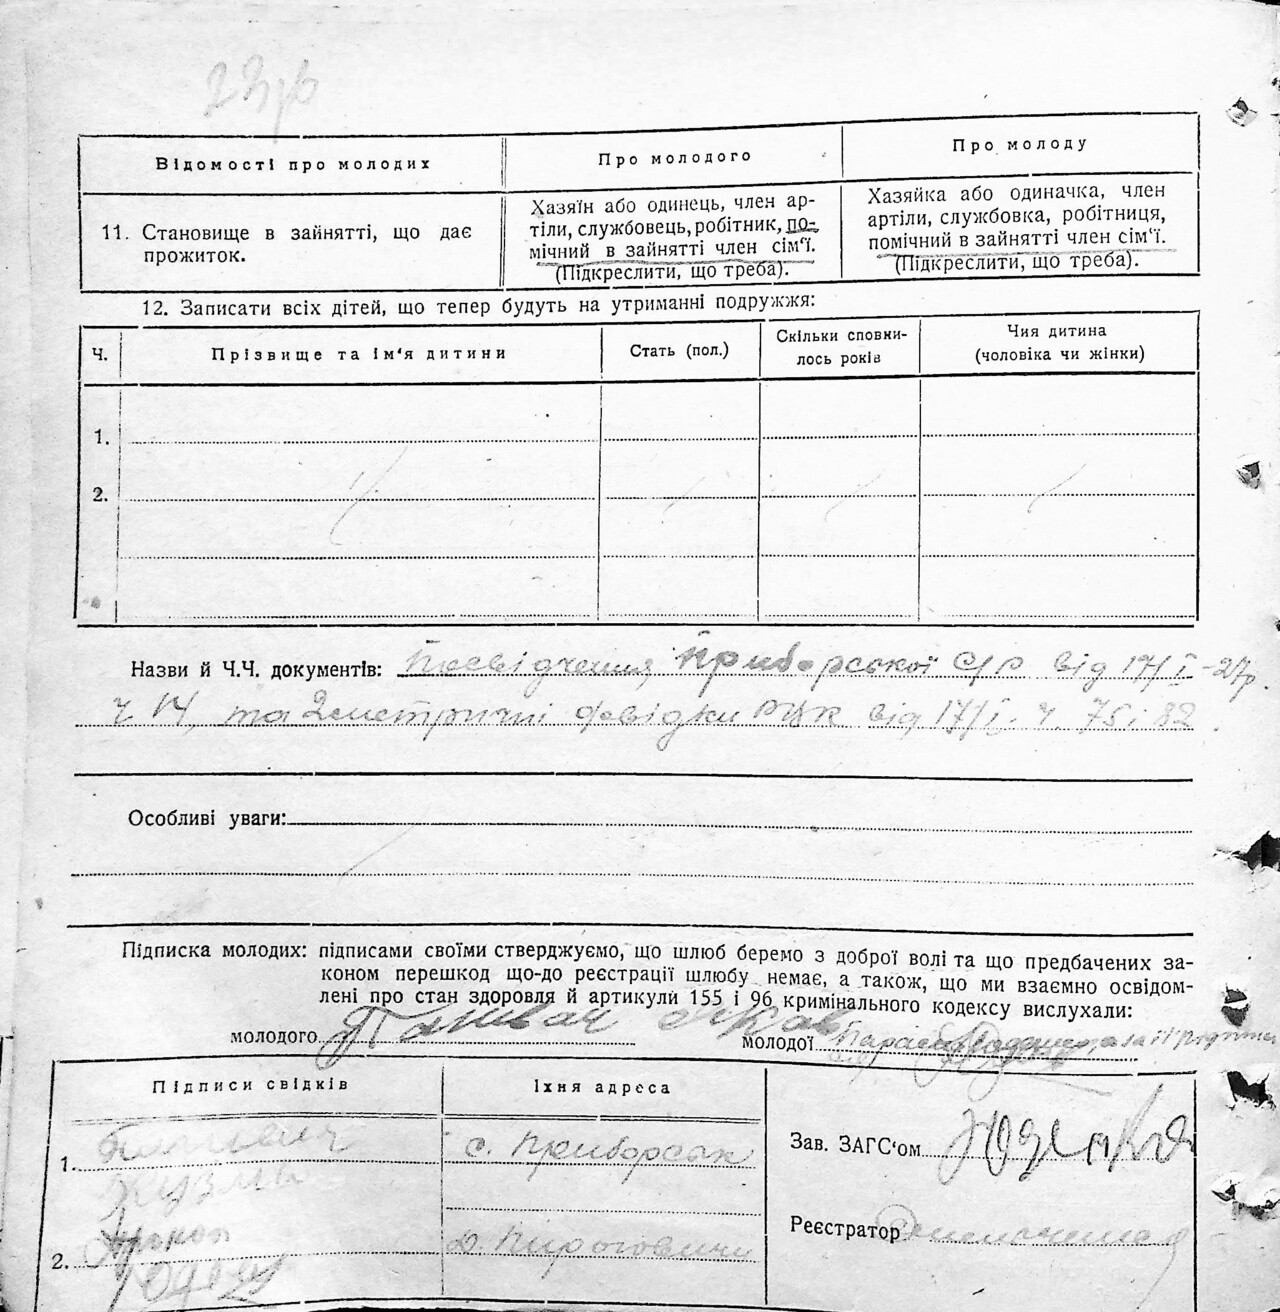 Відомості про молодих
Про молодого
Про молоду
11. Становище в зайнятті, що дає
прожиток.
Хазяїн або одинець, член ар-
тіли, службовець, робітник, по-
мічний в зайнятті член сім'ї.
(Підкреслити, що треба).
Хазяйка або одиначка, член
артіли, службовка, робітниця,
помічний в зайнятті член сім'ї.
(Підкреслити, що треба).
12. Записати всіх дітей, що тепер будуть на утриманні подружжя:
Ч.
Прізвище та ім'я дитини
Стать (пол.)
Скільки сповни-
лось років
Чия дитина
(чоловіка чи жінки)
1.
2.
Назви й Ч.Ч. документів: Посвідчення Приборської С/Р від 17/I-27р.
ч. 14, та 2 метричні довідки від 17/I. ч. 75 і 82.
Особливі уваги:
Підписка молодих: підписами своїми стверджуємо, що шлюб беремо з доброї волі та що предбачених за-
коном перешкод що-до реєстрації шлюбу немає, а також, що ми взаємно освідом-
лені про стан здоровля й артикули 155 і 96 кримінального кодексу вислухали:
молодого
молодої
Підписи свідків
Їхня адреса
1.
Кузьма
с. Приборськ
2.
Пироговичи
Зав. ЗАГС'ом
Реєстратор